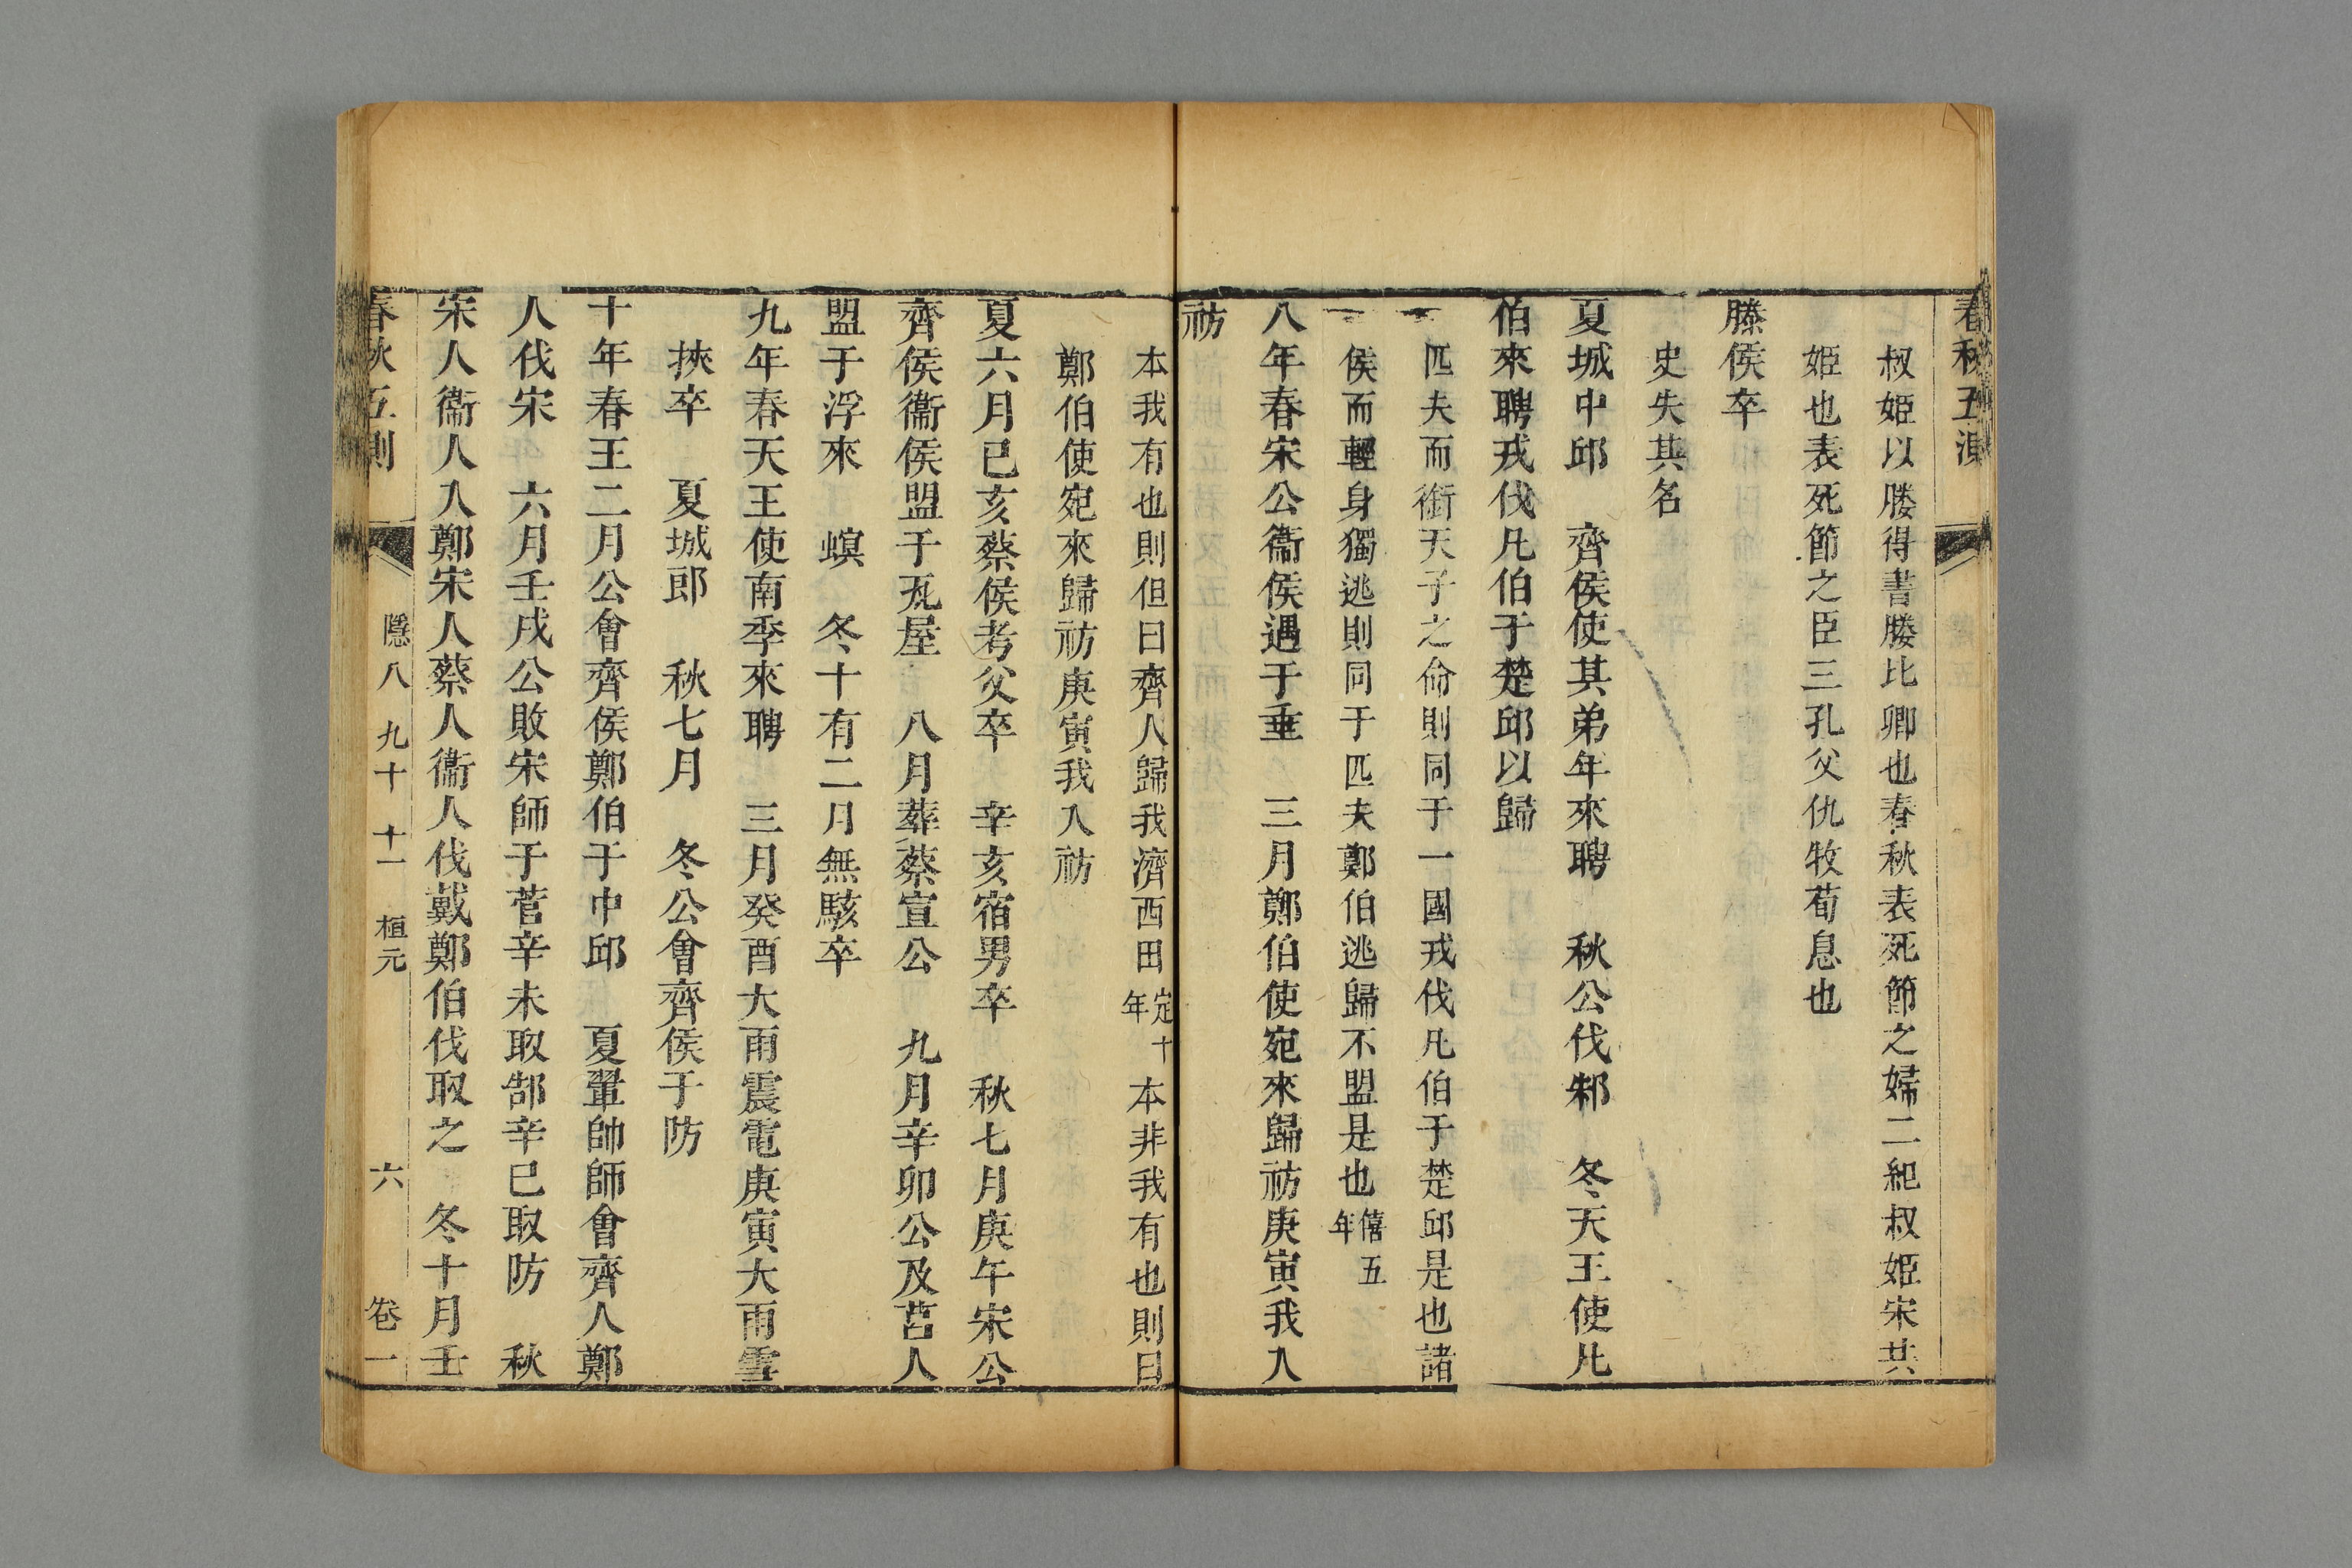 叔姬以媵得書媵比卿也春秋表死節之婦二紀叔姬宋共
姬也表死節之臣三孔父仇牧荀息也
滕侯卒
史失其名
夏城中邱　齊侯使其弟年來聘　秋公伐邾　冬天王使凡
伯來聘戎伐凡伯于楚邱以歸
匹夫而銜天子之命則同于一國戎伐凡伯于楚邱是也諸
侯而輕身獨逃則同于匹夫鄭伯逃歸不盟是也僖五年
八年春宋公衞侯遇于垂　三月鄭伯使宛來歸祊庚寅我入
祊
本我有也則但曰齊人歸我濟西田定十年本非我有也則曰
鄭伯使宛來歸祊庚寅我入祊
夏六月已亥蔡侯考父卒　辛亥宿男卒　秋七月庚午宋公
齊侯衞侯盟于瓦屋　八月葬蔡宣公　九月辛卯公及莒人
盟于浮來　螟　冬十有二月無駭卒
九年春天王使南季來聘　三月癸酉大雨震電庚寅大雨雪
挾卒　夏城郎　秋七月　冬公會齊侯于防
十年春王二月公會齊侯鄭伯于中邱　夏翬帥師會齊人鄭
人伐宋　六月壬戌公敗宋師于菅辛未取郜辛巳取防　秋
宋人衞人入鄭宋人蔡人衞人伐戴鄭伯伐取之　冬十月壬
春秋五測　隱八　九十　十一　桓元　六　卷一